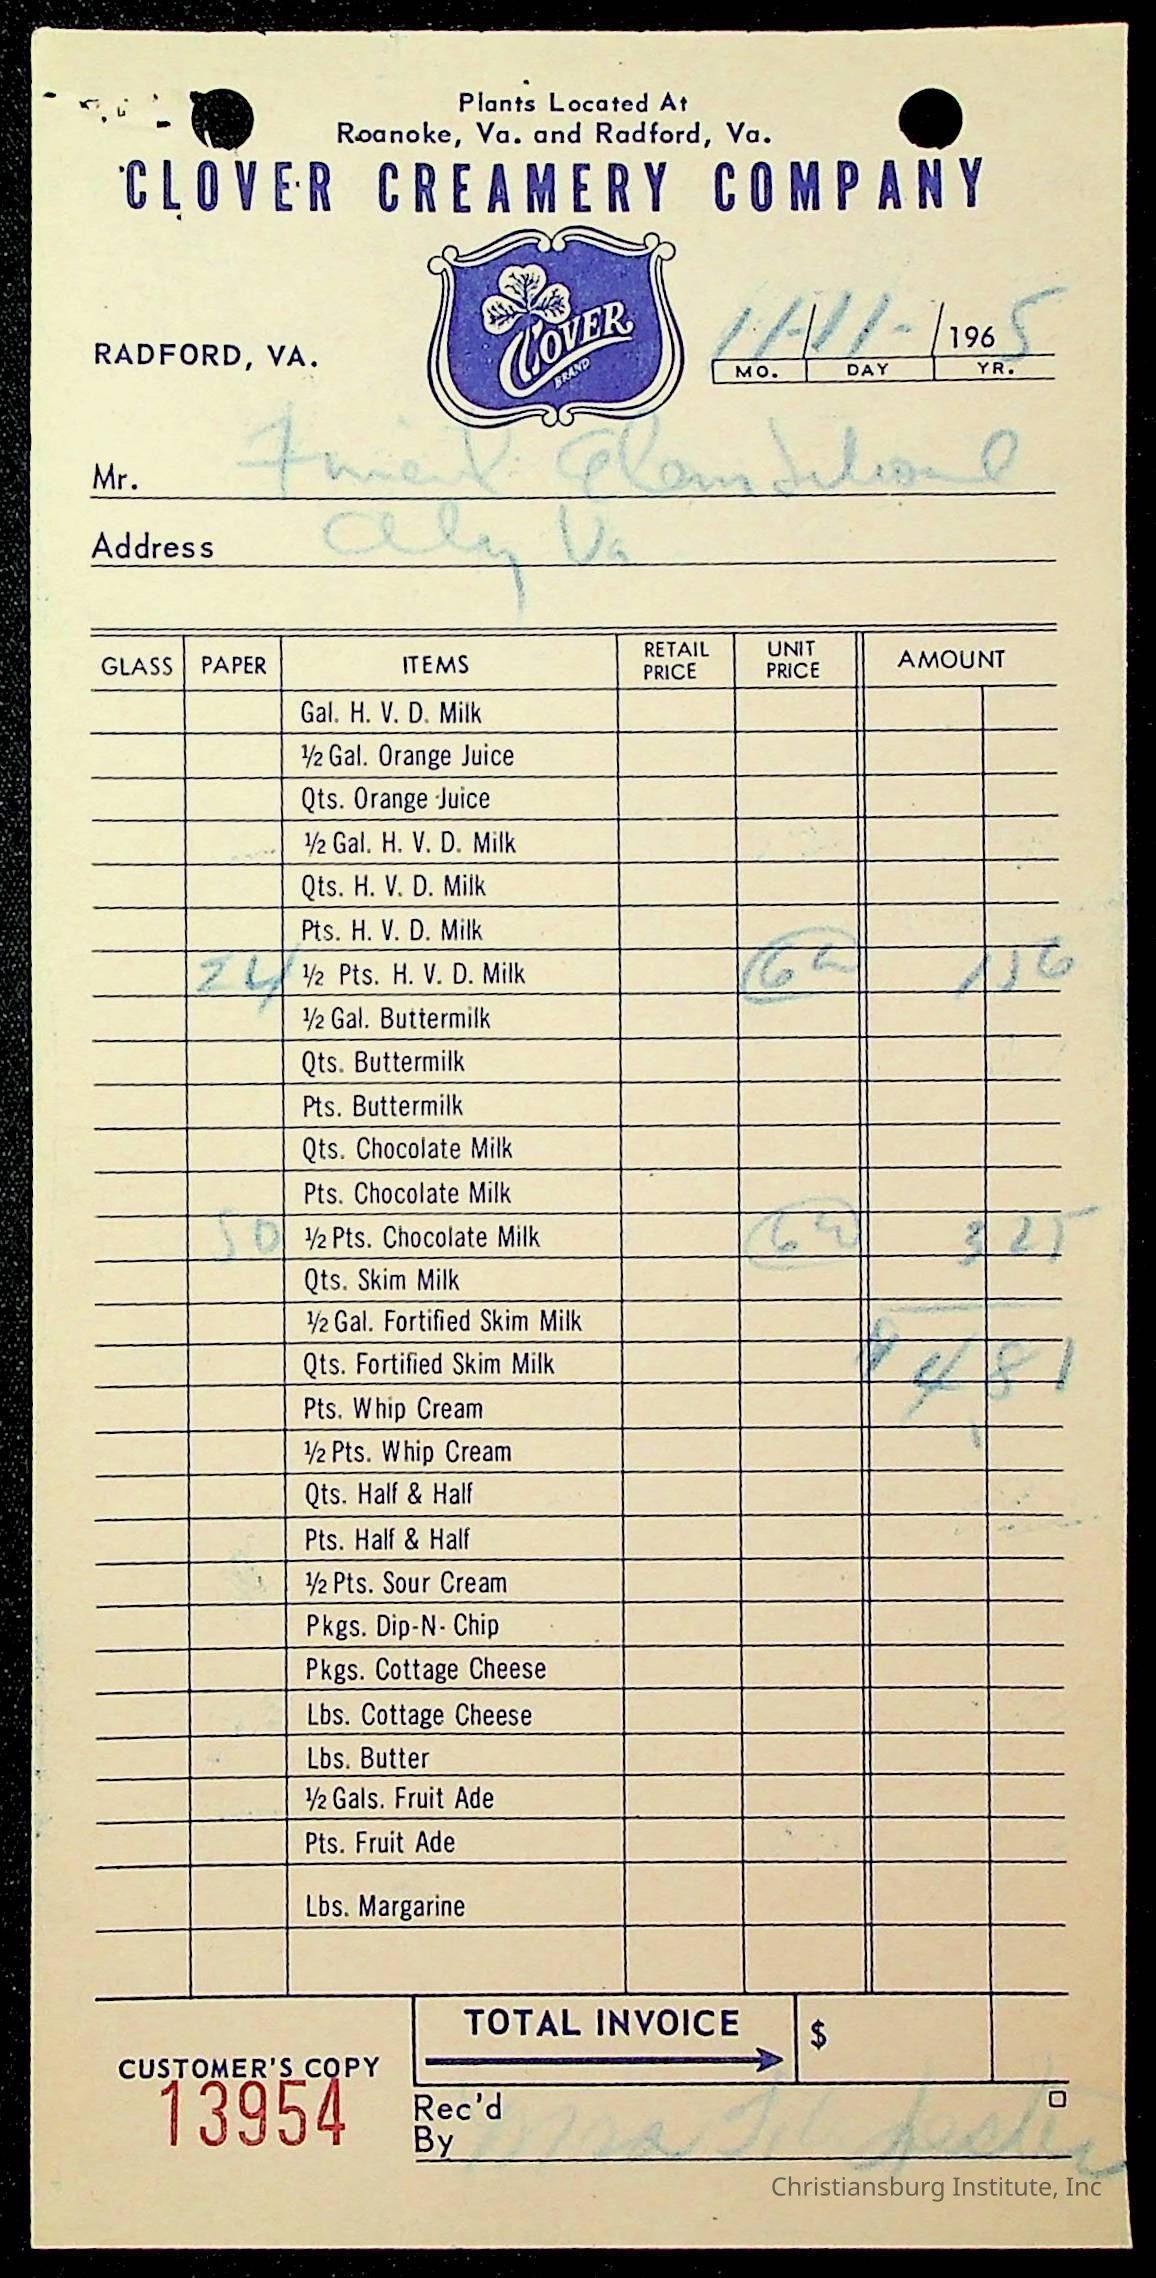 Plants Located At
Roanoke, Va. and Radford, Va.
CLOVER CREAMERY COMPANY
CLOVER
BRAND
RADFORD, VA.
11-11- / 1965
MO. DAY YR.
Mr. Friend Elem School
Address Va
GLASS PAPER ITEMS RETAIL PRICE UNIT PRICE AMOUNT
Gal. H. V. D. Milk
½ Gal. Orange Juice
Qts. Orange Juice
½ Gal. H. V. D. Milk
Qts. H. V. D. Milk
Pts. H. V. D. Milk
24 ½ Pts. H. V. D. Milk 6½ 1 56
½ Gal. Buttermilk
Qts. Buttermilk
Pts. Buttermilk
Qts. Chocolate Milk
Pts. Chocolate Milk
50 ½ Pts. Chocolate Milk 6½ 3 25
Qts. Skim Milk
½ Gal. Fortified Skim Milk
Qts. Fortified Skim Milk 4 81
Pts. Whip Cream
½ Pts. Whip Cream
Qts. Half & Half
Pts. Half & Half
½ Pts. Sour Cream
Pkgs. Dip-N-Chip
Pkgs. Cottage Cheese
Lbs. Cottage Cheese
Lbs. Butter
½ Gals. Fruit Ade
Pts. Fruit Ade
Lbs. Margarine
TOTAL INVOICE $
CUSTOMER'S COPY
13954
Rec'd
By Mrs
Christiansburg Institute, Inc